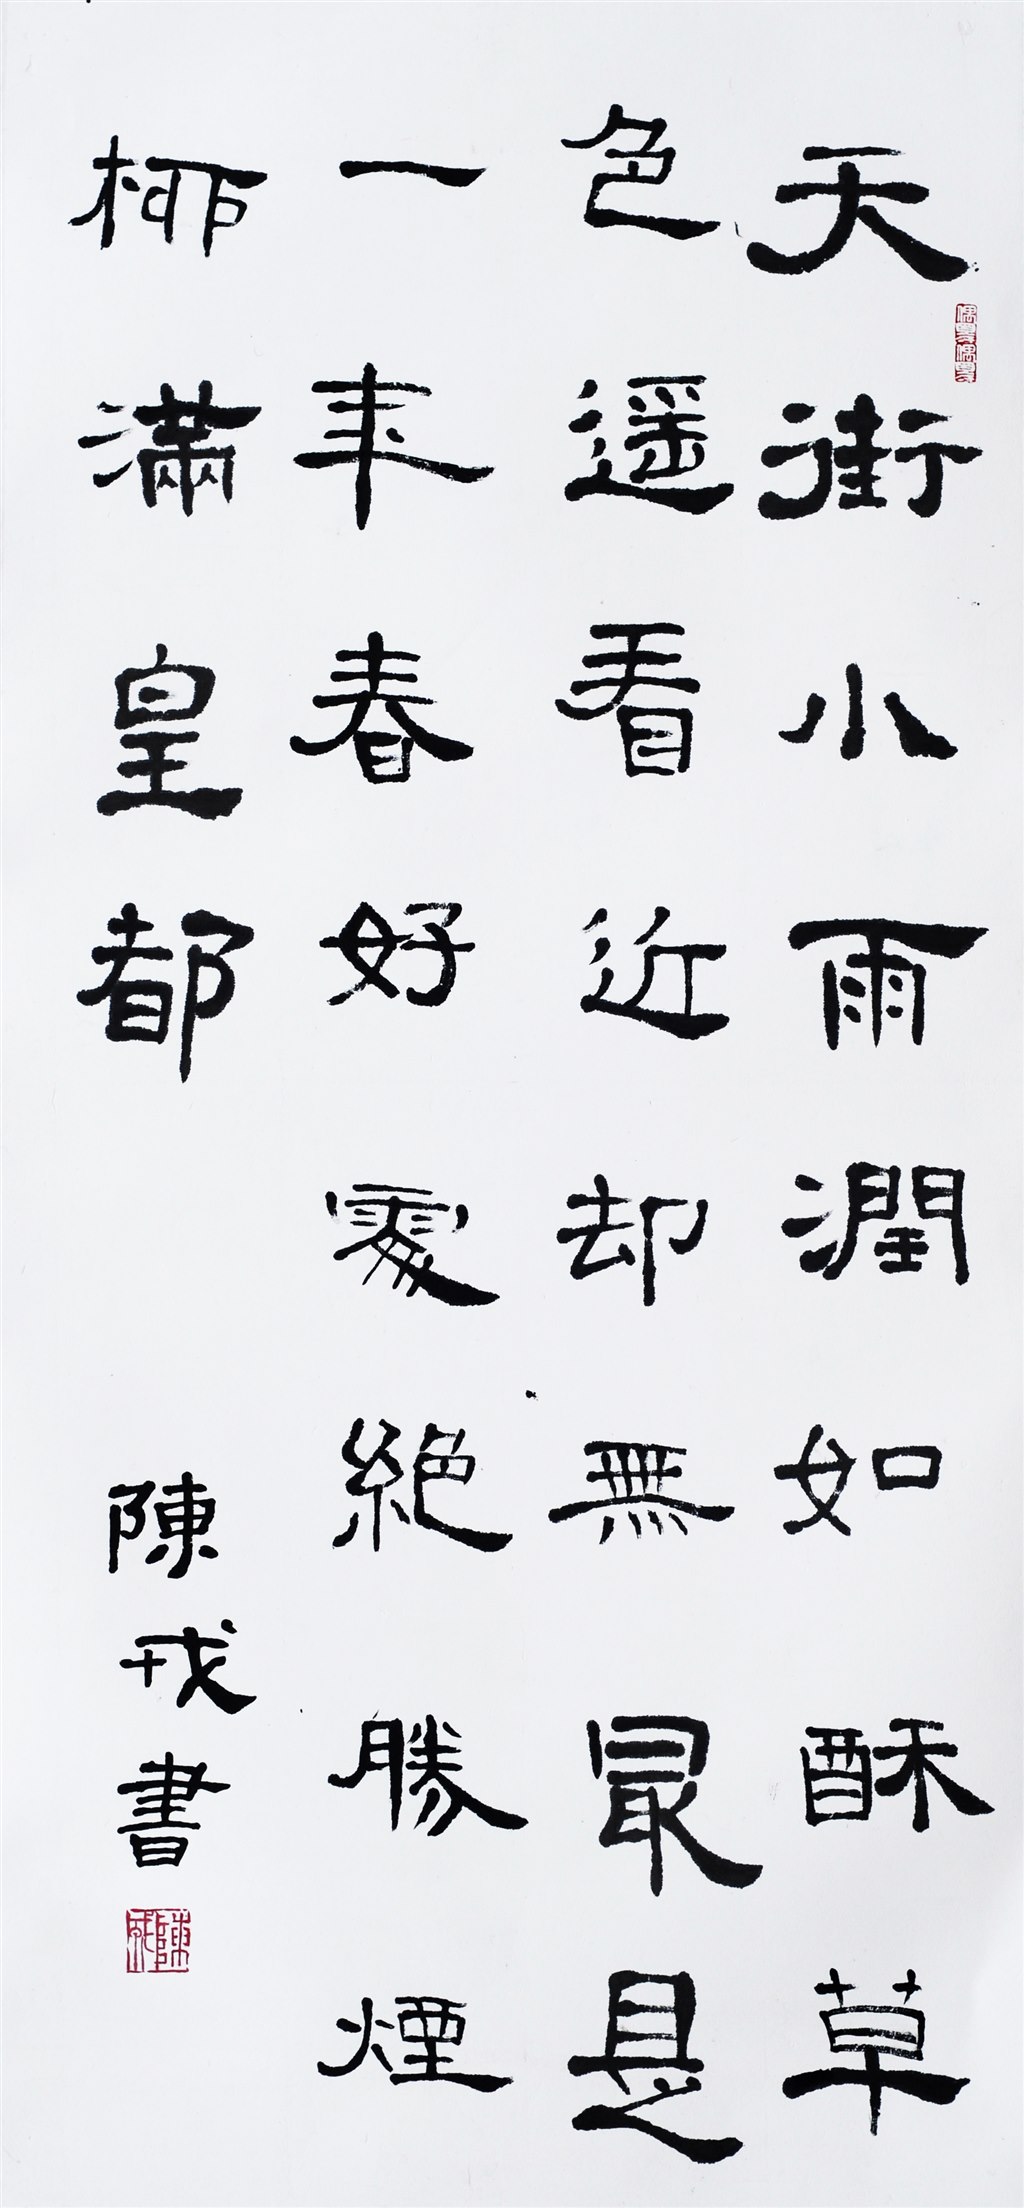 天街小雨潤如酥草
色遥看近却無最是
一年春好處絕勝煙
柳滿皇都
陳戎書